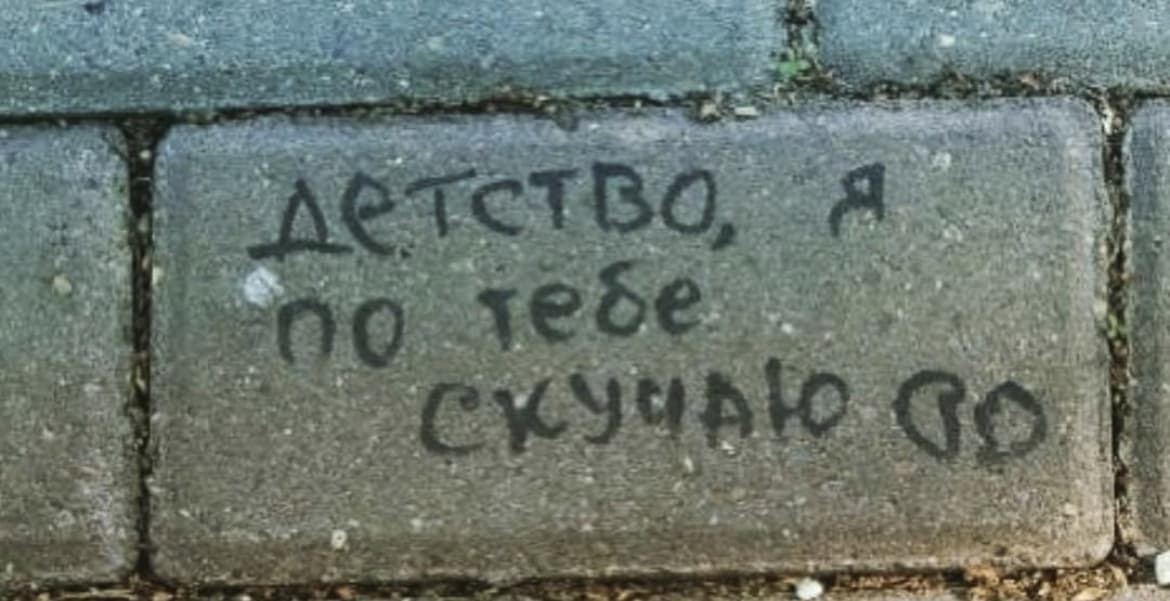 детство, я
по тебе
скучаю